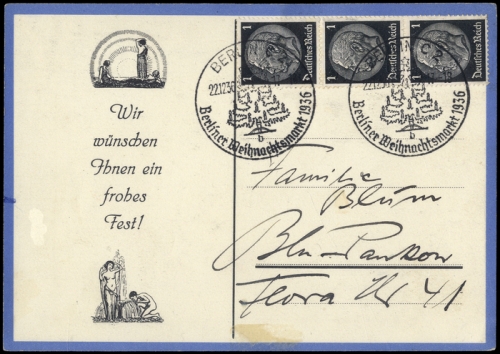 1 Deutsches Reich
1 Deutsches Reich
1 Deutsches Reich
BERLIN C2
22.12.36
Berliner Weihnachtsmarkt 1936
b
BERLIN C2
22.12.36
Berliner Weihnachtsmarkt 1936
b
Wir
wünschen
Ihnen ein
frohes
Fest!
Familie
Blum
Bln-Pankow
Flora Str 41